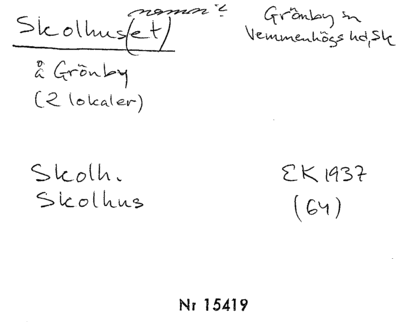 Skolhus(et) namn? Grönby sn
Vemmenhögs hd, Sk
å Grönby
(2 lokaler)
Skolh. EK 1937
Skolhus (64)
Nr 15419